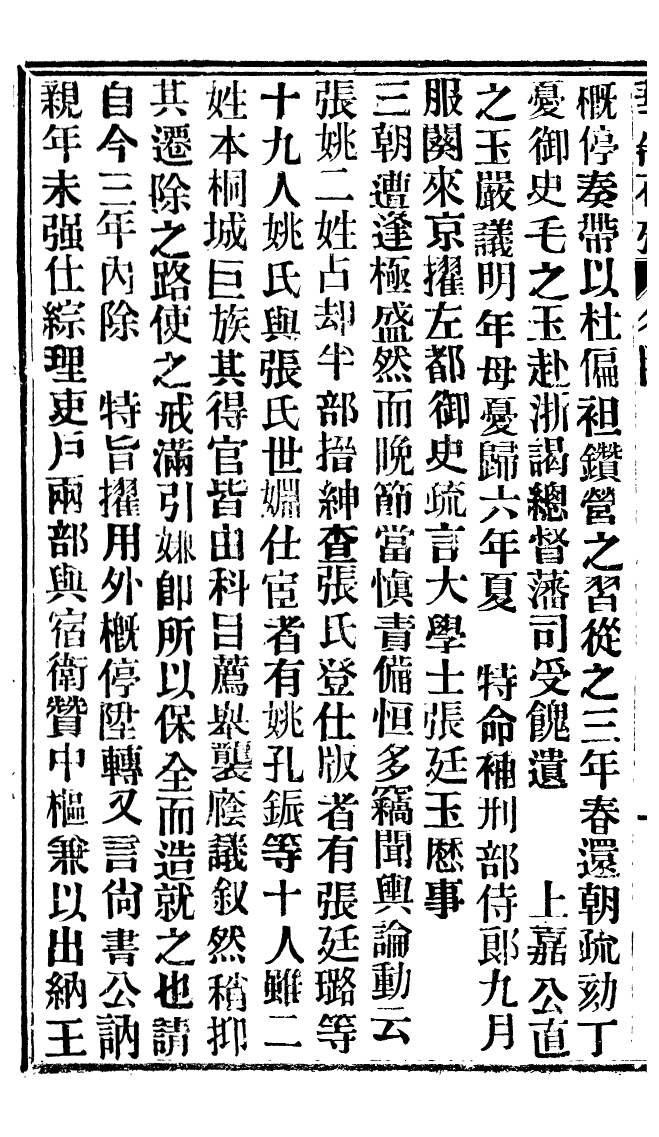 概停奏帶以杜偏袒鑽營之習從之三年春還朝疏劾丁
憂御史毛之玉赴浙謁總督藩司受餽遺　上嘉公直
之玉嚴議明年母憂歸六年夏　特命補刑部侍郎九月
服闋來京擢左都御史疏言大學士張廷玉歷事
三朝遭逢極盛然而晚節當愼責備恒多竊聞輿論動云
張姚二姓占却半部搢紳查張氏登仕版者有張廷璐等
十九人姚氏與張氏世婣仕宦者有姚孔鋠等十人雖二
姓本桐城巨族其得官皆由科目薦舉襲廕議叙然稍抑
其遷除之路使之戒滿引嫌卽所以保全而造就之也請
自今三年內除　特旨擢用外槪停陞轉又言尙書公訥
親年未强仕綜理吏戶兩部與宿衛贊中樞兼以出納王